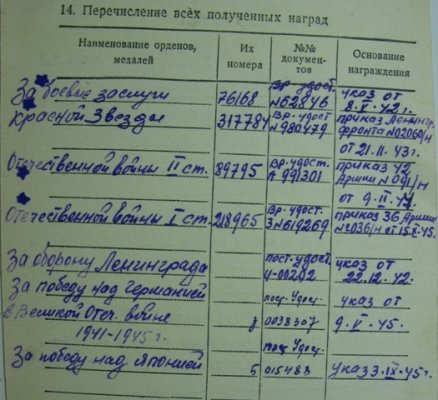 14. Перечисление всех полученных наград
Наименование орденов, медалей
Их номера
№№ документов
Основание награждения
За боевые заслуги 76168 Вр. удост. N62846 указ от 8.V.42 г.
Красной Звезды 317784 Вр. удост N980479 приказ Ленингр. фронта N02060/Н от 21.11.43 г.
Отечественной войны II ст. 89795 Вр. удост. 991301 приказ 42 Армии N091/Н от 9.II.
Отечественной войны I ст. 218965 Вр. удост. N619269 приказ 36 Армии №036/Н от 15.IX.45.
За оборону Ленинграда пост. удост. Ч-00292 указ от 22.12.42.
За победу над Германией
в Великой Отеч. войне
1941-1945 г. 0038307 указ от 9.V.45.
За победу над Японией 015483 указ 3.IX.45.